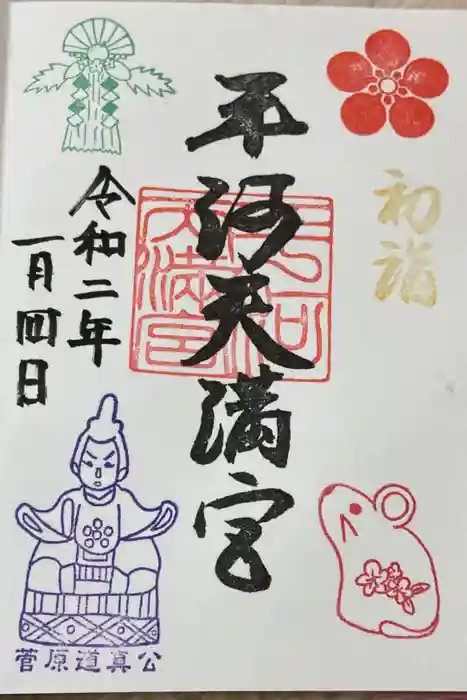 初詣
平河天満宮
令和二年
一月四日
菅原道真公